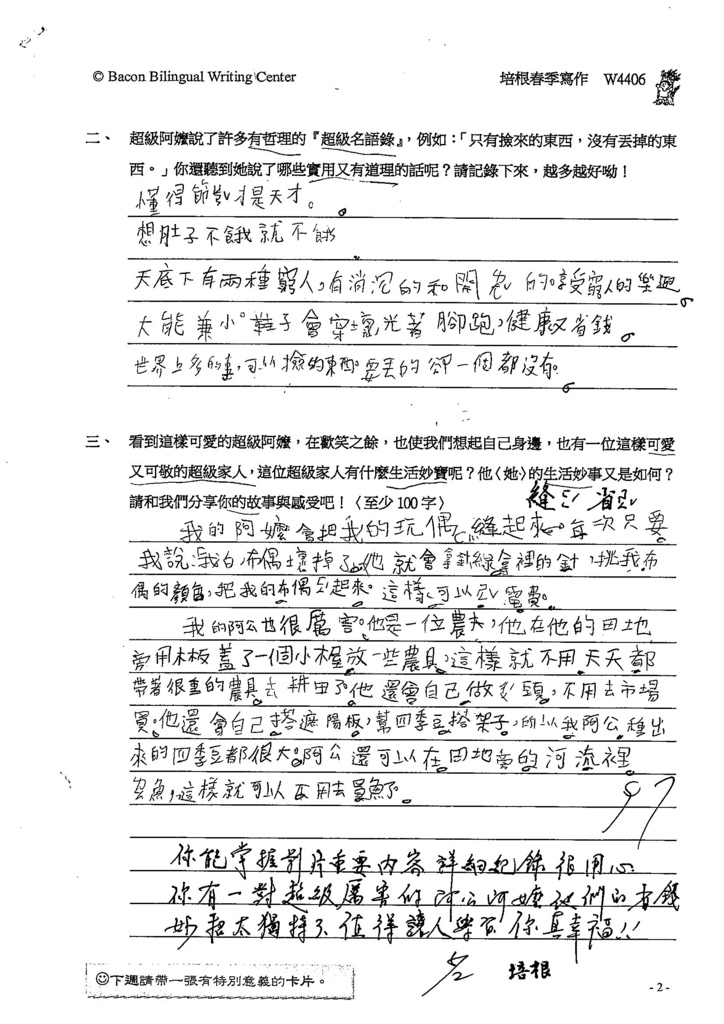 © Bacon Bilingual Writing Center 培根春季寫作 W4406
二、 超級阿嬤說了許多有哲理的『超級名語錄』，例如：「只有撿來的東西，沒有丟掉的東
西。」你還聽到她說了哪些實用又有道理的話呢？請記錄下來，越多越好呦！
懂得節省才是天才。
想肚子不餓就不餓。
天底下有兩種窮人，有消沉的和開 的。享受窮人的樂吧。
大能兼小。鞋子會穿壞光著腳跑，健康又省錢。
世界上多的 ，可以撿的東西。要丟的卻一個都沒有。
三、 看到這樣可愛的超級阿嬤，在歡笑之餘，也使我們想起自己身邊，也有一位這樣可愛
又可敬的超級家人，這位超級家人有什麼生活妙寶呢？他〈她〉的生活妙事又是如何？
請和我們分享你的故事與感受吧！〈至少 100 字〉
縫 省
我的阿嬤會把我的玩偶縫起來。每次只要
我說：我的布偶壞掉了。她就會拿針線 裡的針，挑我布
偶的顏色，把我的布偶 起來。這樣可以 電費。
我的阿公也很厲害。他是一位農夫，他在他的田地
旁用木板蓋了一個小木屋放一些農具，這樣就不用天天都
帶著很重的農具去耕田了。他還會自己做 頭，不用去市場
買。他還會自己搭遮陽板，幫四季豆搭架子，所以我阿公種出
來的四季豆都很大。阿公還可以在田地旁的河流裡
魚，這樣就可以不用去買魚了。
97
你能掌握影片重要內容詳細紀錄很用心
你有一對超級厲害的阿公阿嬤他們的省錢
妙招太獨特了值得讓人學習你真幸福!!
5/2 培根
☺下週請帶一張有特別意義的卡片。
- 2 -